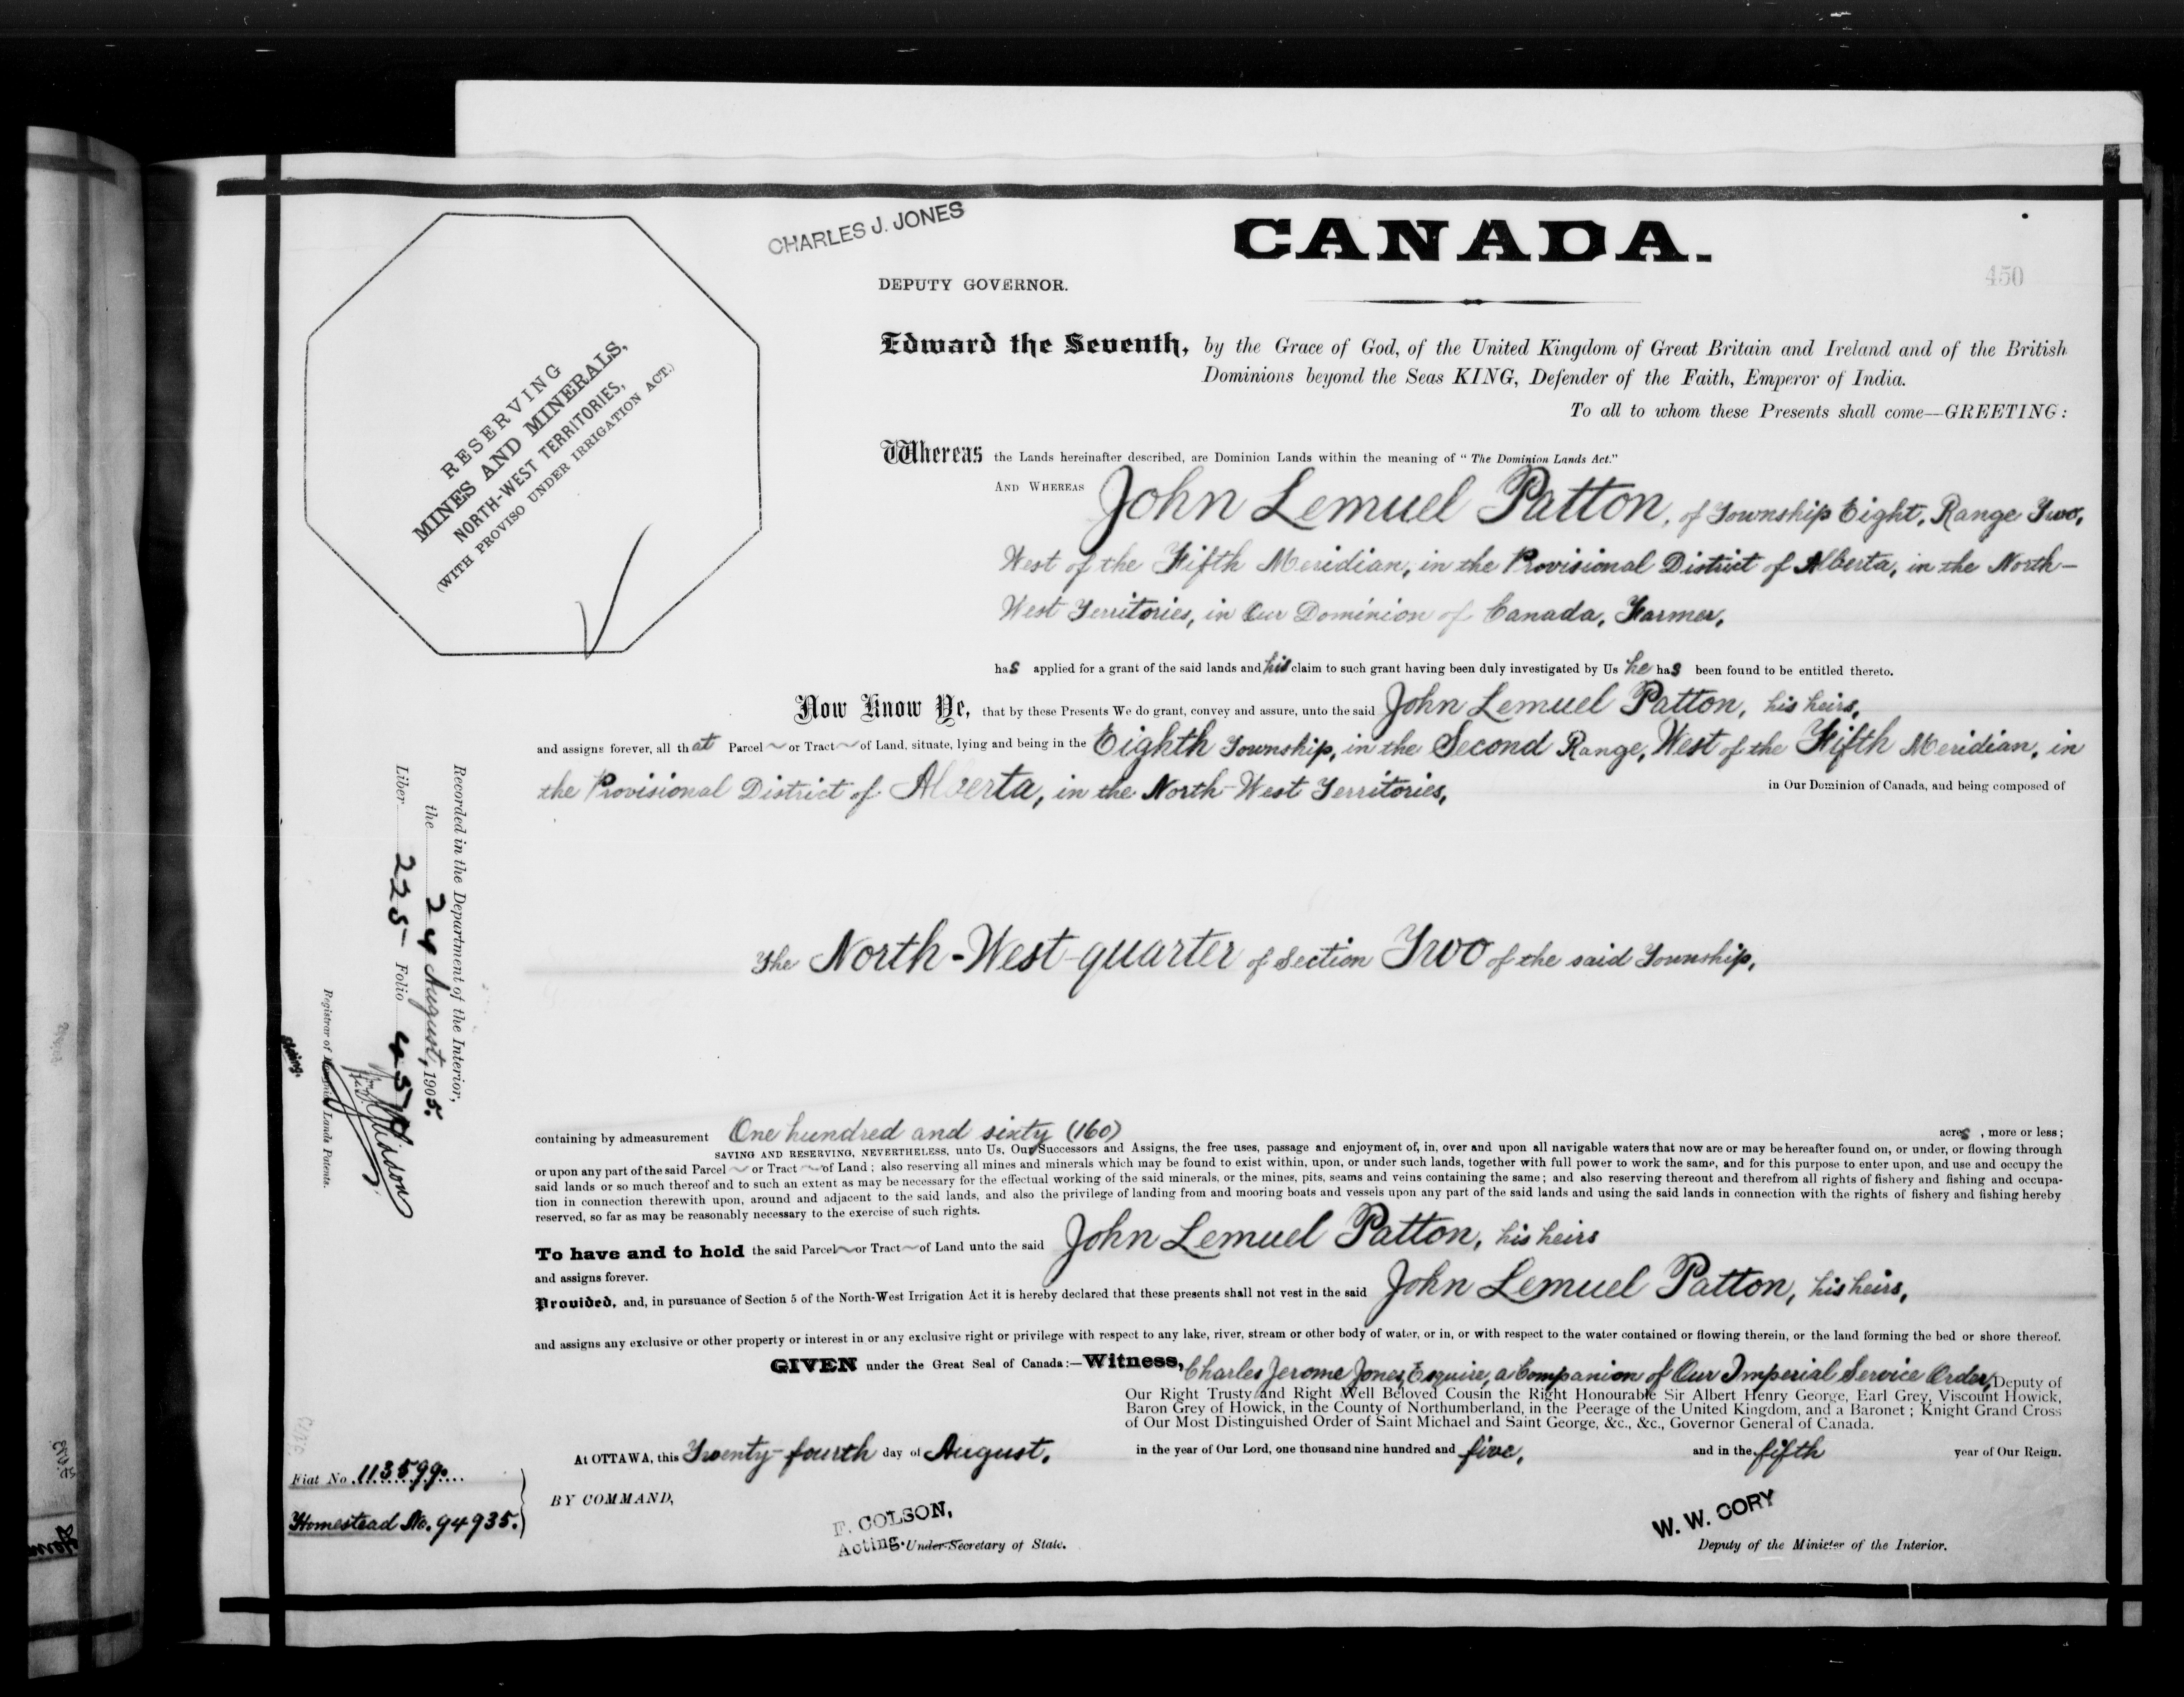 CHARLES J. JONES
CANADA.
DEPUTY GOVERNOR.
450
RESERVING
MINES AND MINERALS,
NORTH-WEST TERRITORIES,
(WITH PROVISO UNDER IRRIGATION ACT.)
Edward the Seventh, by the Grace of God, of the United Kingdom of Great Britain and Ireland and of the British
Dominions beyond the Seas KING, Defender of the Faith, Emperor of India.
To all to whom these Presents shall come—GREETING:
Whereas the Lands hereinafter described, are Dominion Lands within the meaning of "The Dominion Lands Act."
AND WHEREAS John Lemuel Patton, of Township Eight, Range Two,
West of the Fifth Meridian, in the Provisional District of Alberta, in the North-
West Territories, in Our Dominion of Canada, Farmer,
has applied for a grant of the said lands and his claim to such grant having been duly investigated by Us he has been found to be entitled thereto.
Now Know Ye, that by these Presents We do grant, convey and assure, unto the said John Lemuel Patton, his heirs,
and assigns forever, all that Parcel or Tract of Land, situate, lying and being in the Eighth Township, in the Second Range, West of the Fifth Meridian, in
the Provisional District of Alberta, in the North-West Territories, in Our Dominion of Canada, and being composed of
The North-West quarter of Section Two of the said Township,
containing by admeasurement One hundred and sixty (160) acres, more or less;
SAVING AND RESERVING, NEVERTHELESS, unto Us, Our Successors and Assigns, the free uses, passage and enjoyment of, in, over and upon all navigable waters that now are or may be hereafter found on, or under, or flowing through
or upon any part of the said Parcel or Tract of Land; also reserving all mines and minerals which may be found to exist within, upon, or under such lands, together with full power to work the same, and for this purpose to enter upon, and use and occupy the
said lands or so much thereof and to such an extent as may be necessary for the effectual working of the said minerals, or the mines, pits, seams and veins containing the same; and also reserving thereout and therefrom all rights of fishery and fishing and occupa-
tion in connection therewith upon, around and adjacent to the said lands, and also the privilege of landing from and mooring boats and vessels upon any part of the said lands and using the said lands in connection with the rights of fishery and fishing hereby
reserved, so far as may be reasonably necessary to the exercise of such rights.
To have and to hold the said Parcel or Tract of Land unto the said John Lemuel Patton, his heirs
and assigns forever.
Provided, and, in pursuance of Section 5 of the North-West Irrigation Act it is hereby declared that these presents shall not vest in the said John Lemuel Patton, his heirs,
and assigns any exclusive or other property or interest in or any exclusive right or privilege with respect to any lake, river, stream or other body of water, or in, or with respect to the water contained or flowing therein, or the land forming the bed or shore thereof.
GIVEN under the Great Seal of Canada:—Witness, Charles Jerome Jones, Esquire, a Companion of Our Imperial Service Order, Deputy of
Our Right Trusty and Right Well Beloved Cousin the Right Honourable Sir Albert Henry George, Earl Grey, Viscount Howick,
Baron Grey of Howick, in the County of Northumberland, in the Peerage of the United Kingdom, and a Baronet; Knight Grand Cross
of Our Most Distinguished Order of Saint Michael and Saint George, &c., &c., Governor General of Canada.
At OTTAWA, this Twenty-fourth day of August, in the year of Our Lord, one thousand nine hundred and five, and in the fifth year of Our Reign.
BY COMMAND,
F. COLSON,
Acting Under-Secretary of State.
W. W. CORY
Deputy of the Minister of the Interior.
Fiat No. 113599
Homestead No. 94935.
Recorded in the Department of the Interior,
the 24 August, 1905.
Liber 225 Folio 450
Registrar of Dominion Lands Patents.